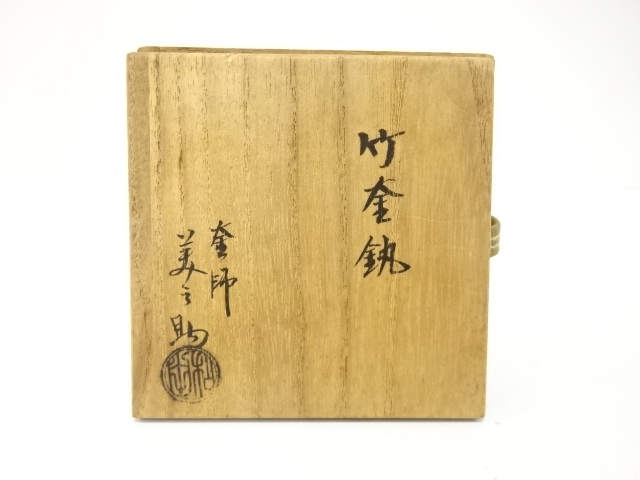 竹釜釻
釜師
美之助